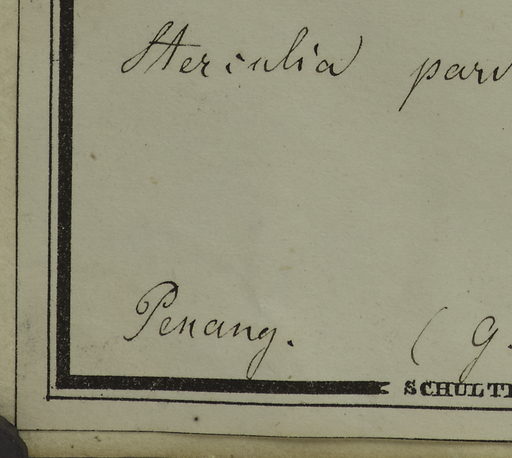 Sterculia parv
Penang. ( G.
SCHULT